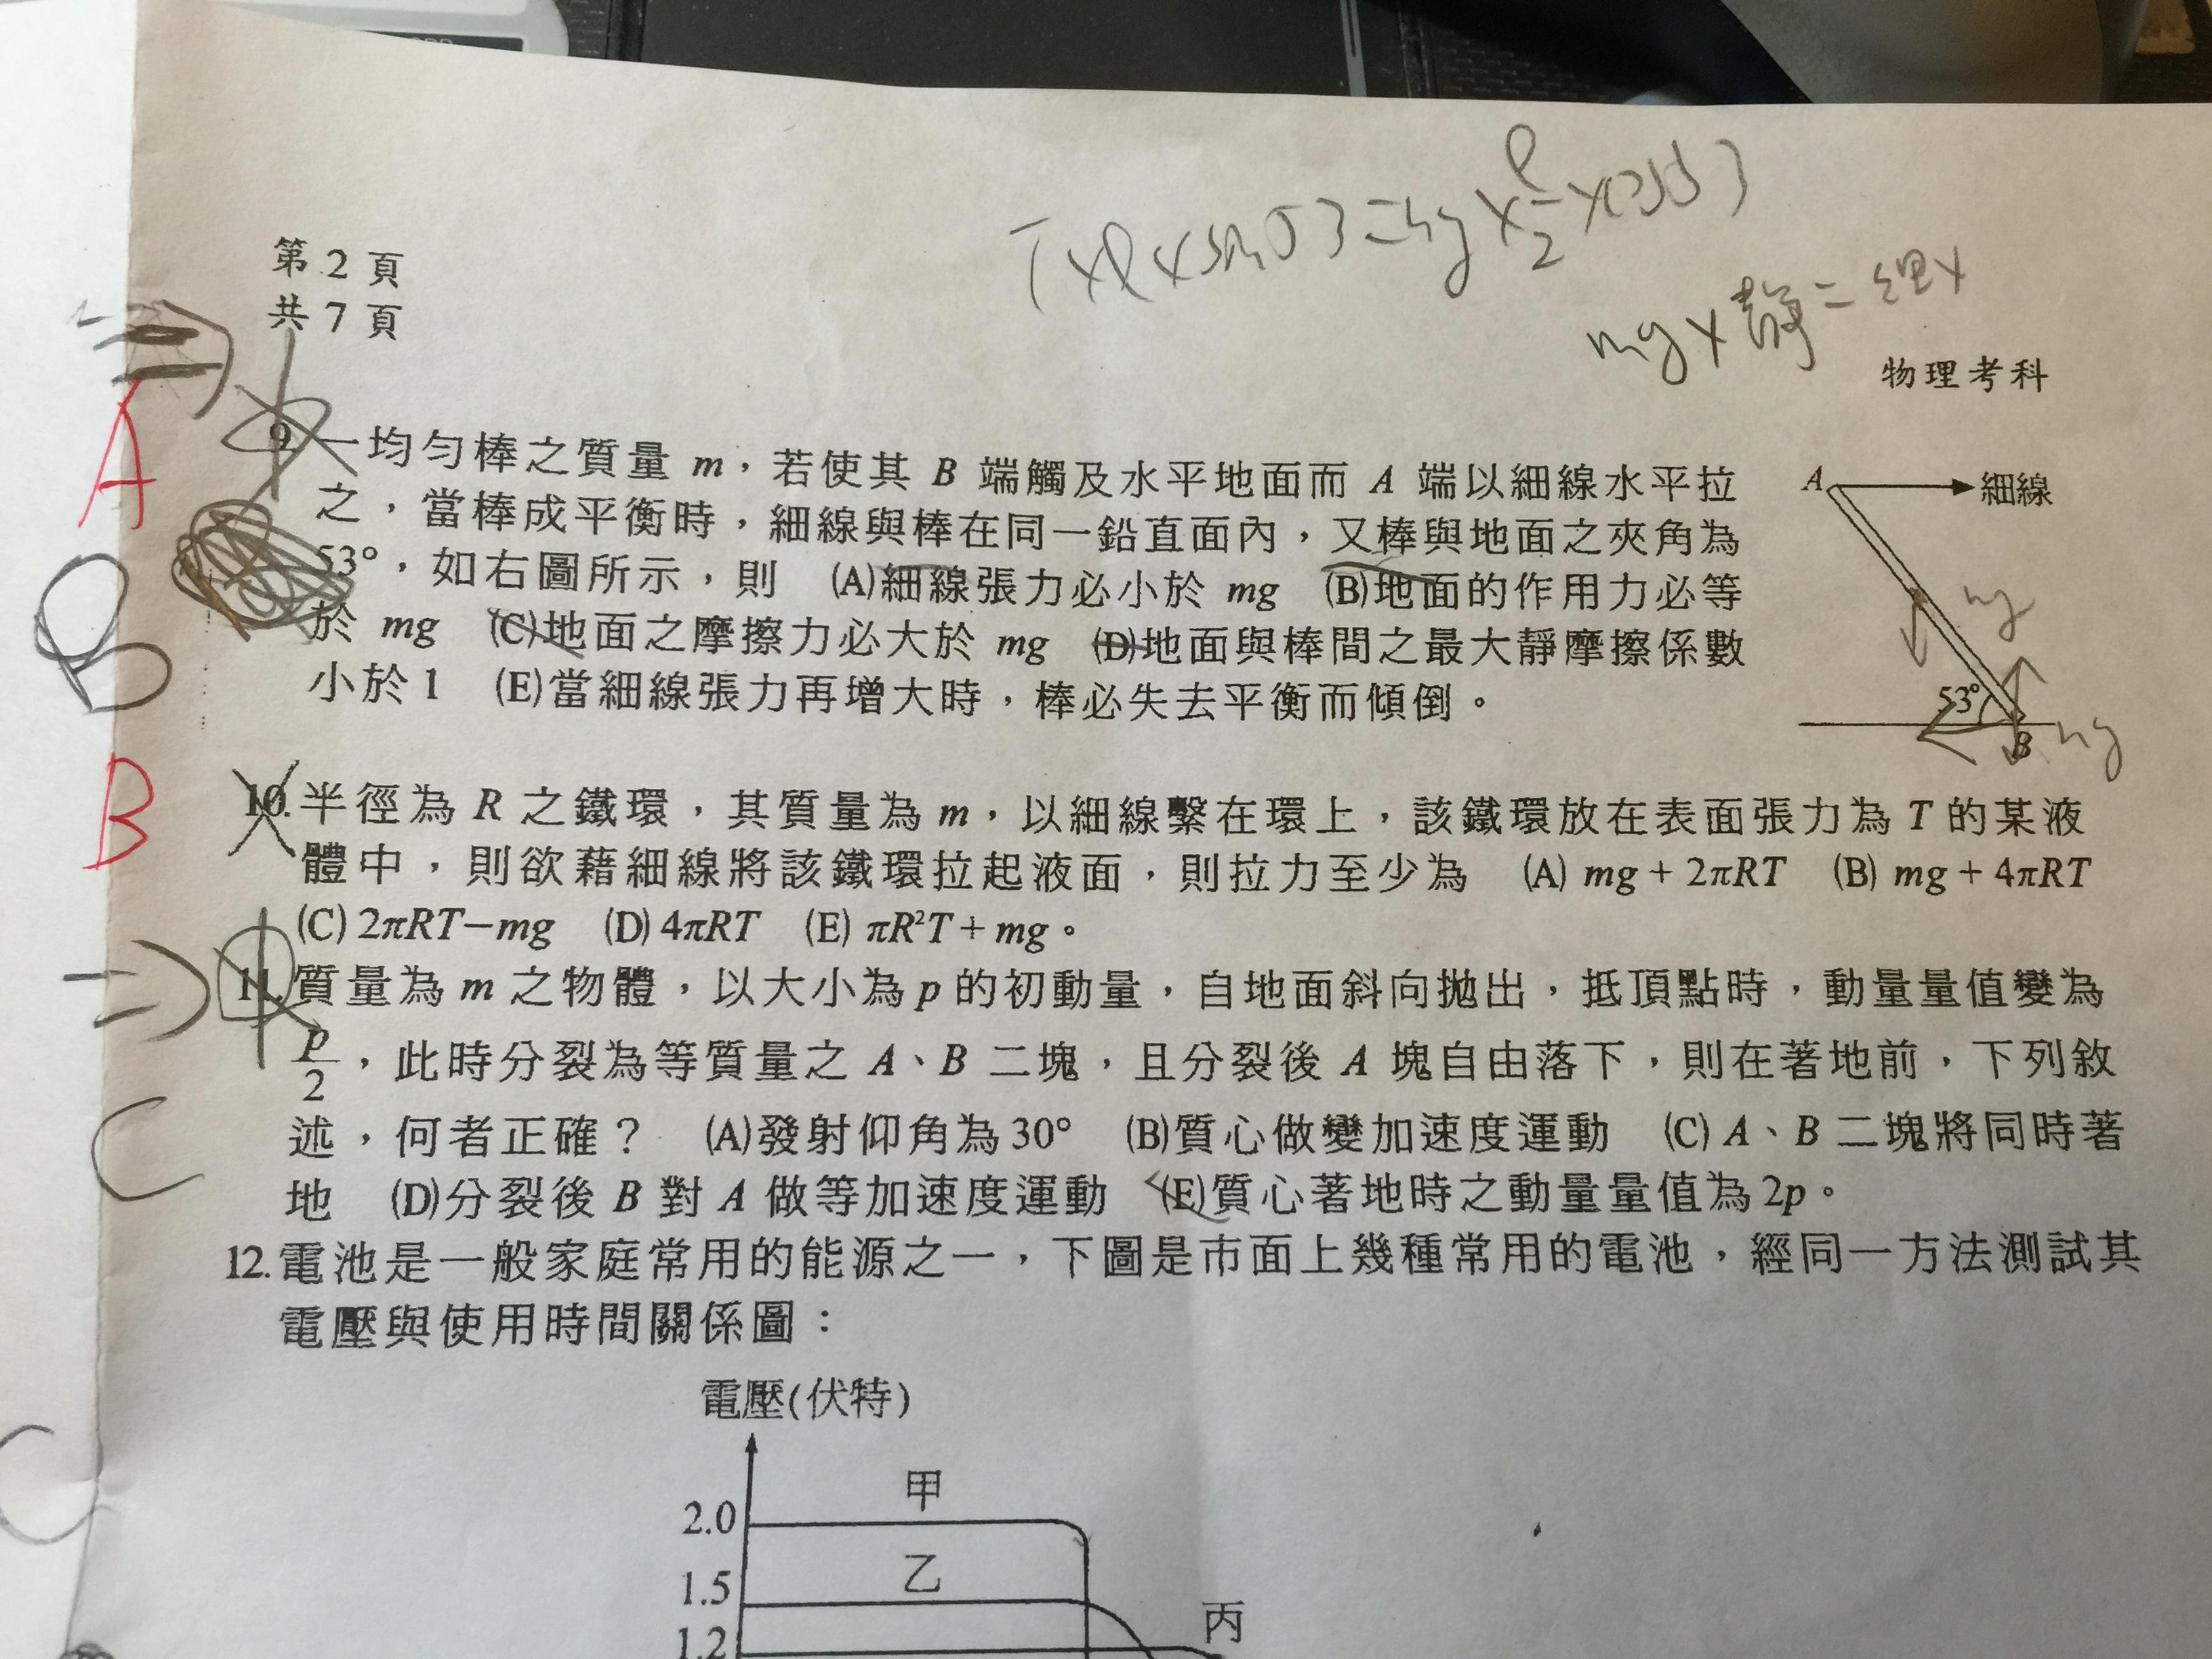 T×ℓ×sin53=mg×ℓ/2×cos53
mg×靜=
第 2 頁
共 7 頁
物理考科
A
9. 一均勻棒之質量 m，若使其 B 端觸及水平地面而 A 端以細線水平拉
之，當棒成平衡時，細線與棒在同一鉛直面內，又棒與地面之夾角為
53°，如右圖所示，則 (A)細線張力必小於 mg (B)地面的作用力必等
於 mg (C)地面之摩擦力必大於 mg (D)地面與棒間之最大靜摩擦係數
小於 1 (E)當細線張力再增大時，棒必失去平衡而傾倒。
A 細線
mg
53°
B mg
B
B
10. 半徑為 R 之鐵環，其質量為 m，以細線繫在環上，該鐵環放在表面張力為 T 的某液
體中，則欲藉細線將該鐵環拉起液面，則拉力至少為 (A) mg + 2πRT (B) mg + 4πRT
(C) 2πRT−mg (D) 4πRT (E) πR²T + mg。
11. 質量為 m 之物體，以大小為 p 的初動量，自地面斜向拋出，抵頂點時，動量量值變為
p/2，此時分裂為等質量之 A、B 二塊，且分裂後 A 塊自由落下，則在著地前，下列敘
述，何者正確？ (A)發射仰角為 30° (B)質心做變加速度運動 (C) A、B 二塊將同時著
地 (D)分裂後 B 對 A 做等加速度運動 (E)質心著地時之動量量值為 2p。
C
12. 電池是一般家庭常用的能源之一，下圖是市面上幾種常用的電池，經同一方法測試其
電壓與使用時間關係圖：
C
電壓(伏特)
甲
2.0
乙
1.5
丙
1.2